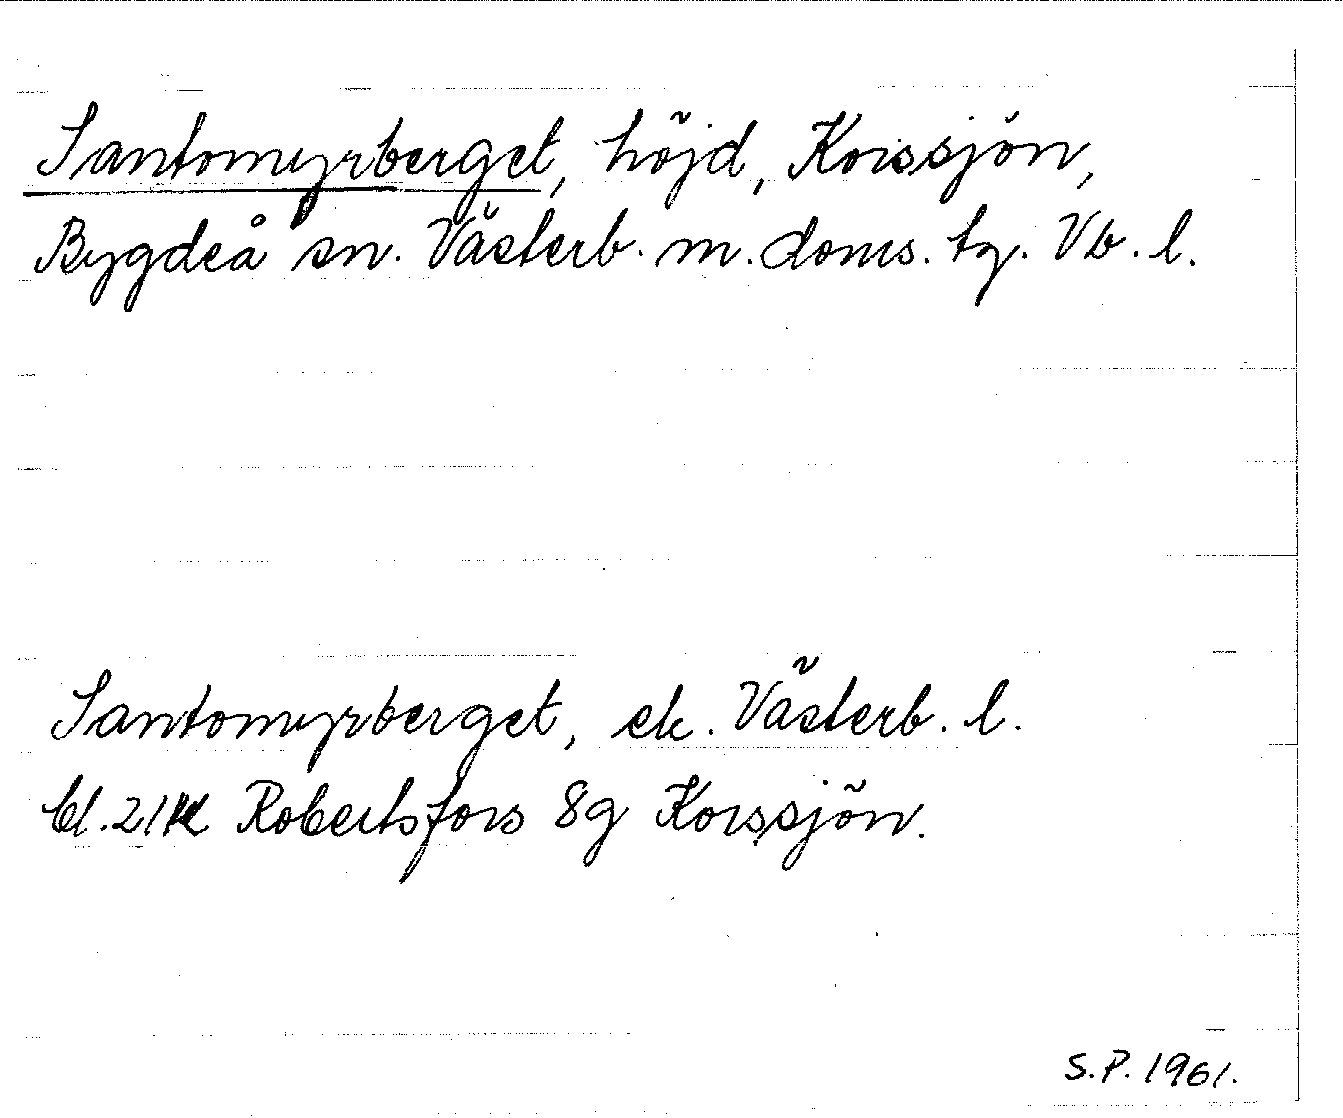 Santomyrberget, höjd, Korssjön,
Bygdeå sn. Västerb. m. doms. tg. Vb. l.
Santomyrberget, ek. Västerb. l.
bl. 21K Robertsfors 8g Korssjön.
S.P. 1961.